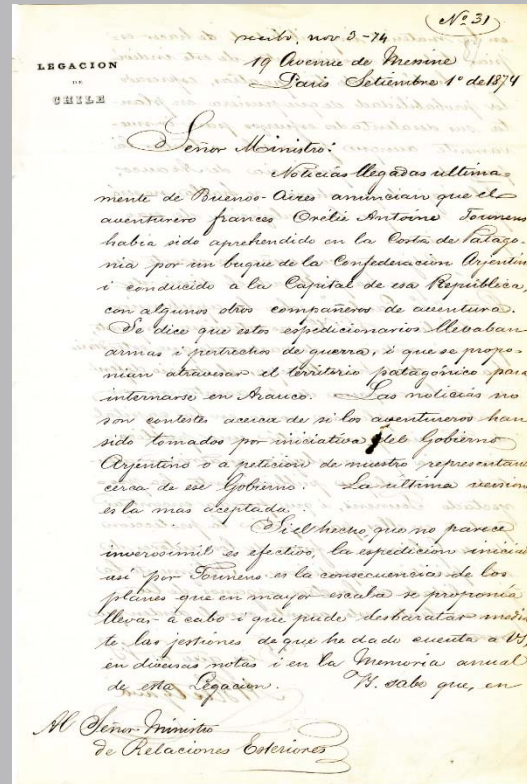 (Nº 31)
recibo, nov 3-74
LEGACION
DE
CHILE
19 Avenue de Messine
Paris Setiembre 1º de 1874
Señor Ministro:
Noticias llegadas ultima-
mente de Buenos-Aires anuncian que el
aventurero frances Orélie Antoine Tounens
habia sido aprehendido en la Costa de Patago-
nia por un buque de la Confederacion Arjentin
i conducido a la Capital de esa República,
con algunos otros compañeros de aventura.
Se dice que estos espedicionarios llevaban
armas i pertrechos de guerra, i que se propo-
nian atravesar el territorio patagónico para
internarse en Arauco. Las noticias no
son contestes acerca de si los aventureros han
sido tomados por iniciativa del Gobierno
Arjentino o a peticion de nuestro representan
cerca de ese Gobierno. La ultima version
es la mas aceptada.
Si el hecho que no parece
inverosimil es efectivo, la espedicion inicia
asi por Tounens es la consecuencia de los
planes que en mayor escala se proponia
llevar a cabo i que pude desbaratar media
te las jestiones de que he dado cuenta a VS,
en diversas notas i en la Memoria anual
de esta Legacion. VS. sabe que, en
Al Señor Ministro
de Relaciones Esteriores